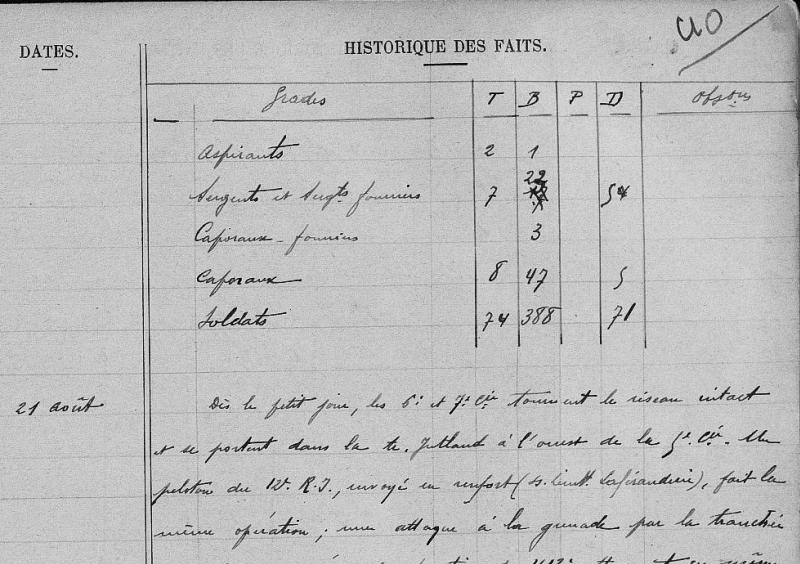 40
DATES.
HISTORIQUE DES FAITS.
Grades T B P D Obs.ons
Aspirants 2 1
Sergents et Sergts fourriers 7 22 5
Caporaux-fourriers 3
Caporaux 8 47 5
Soldats 74 388 71
21 août
Dès le petit jour, les 6e et 7e Cie tournent le réseau intact
et se portent dans la te. Jutland à l'ouest de la 5e Cie. Un
peloton du 12e R.I., envoyé en renfort (s. lieutt. ), fait la
même opération ; une attaque à la grenade par la tranchée